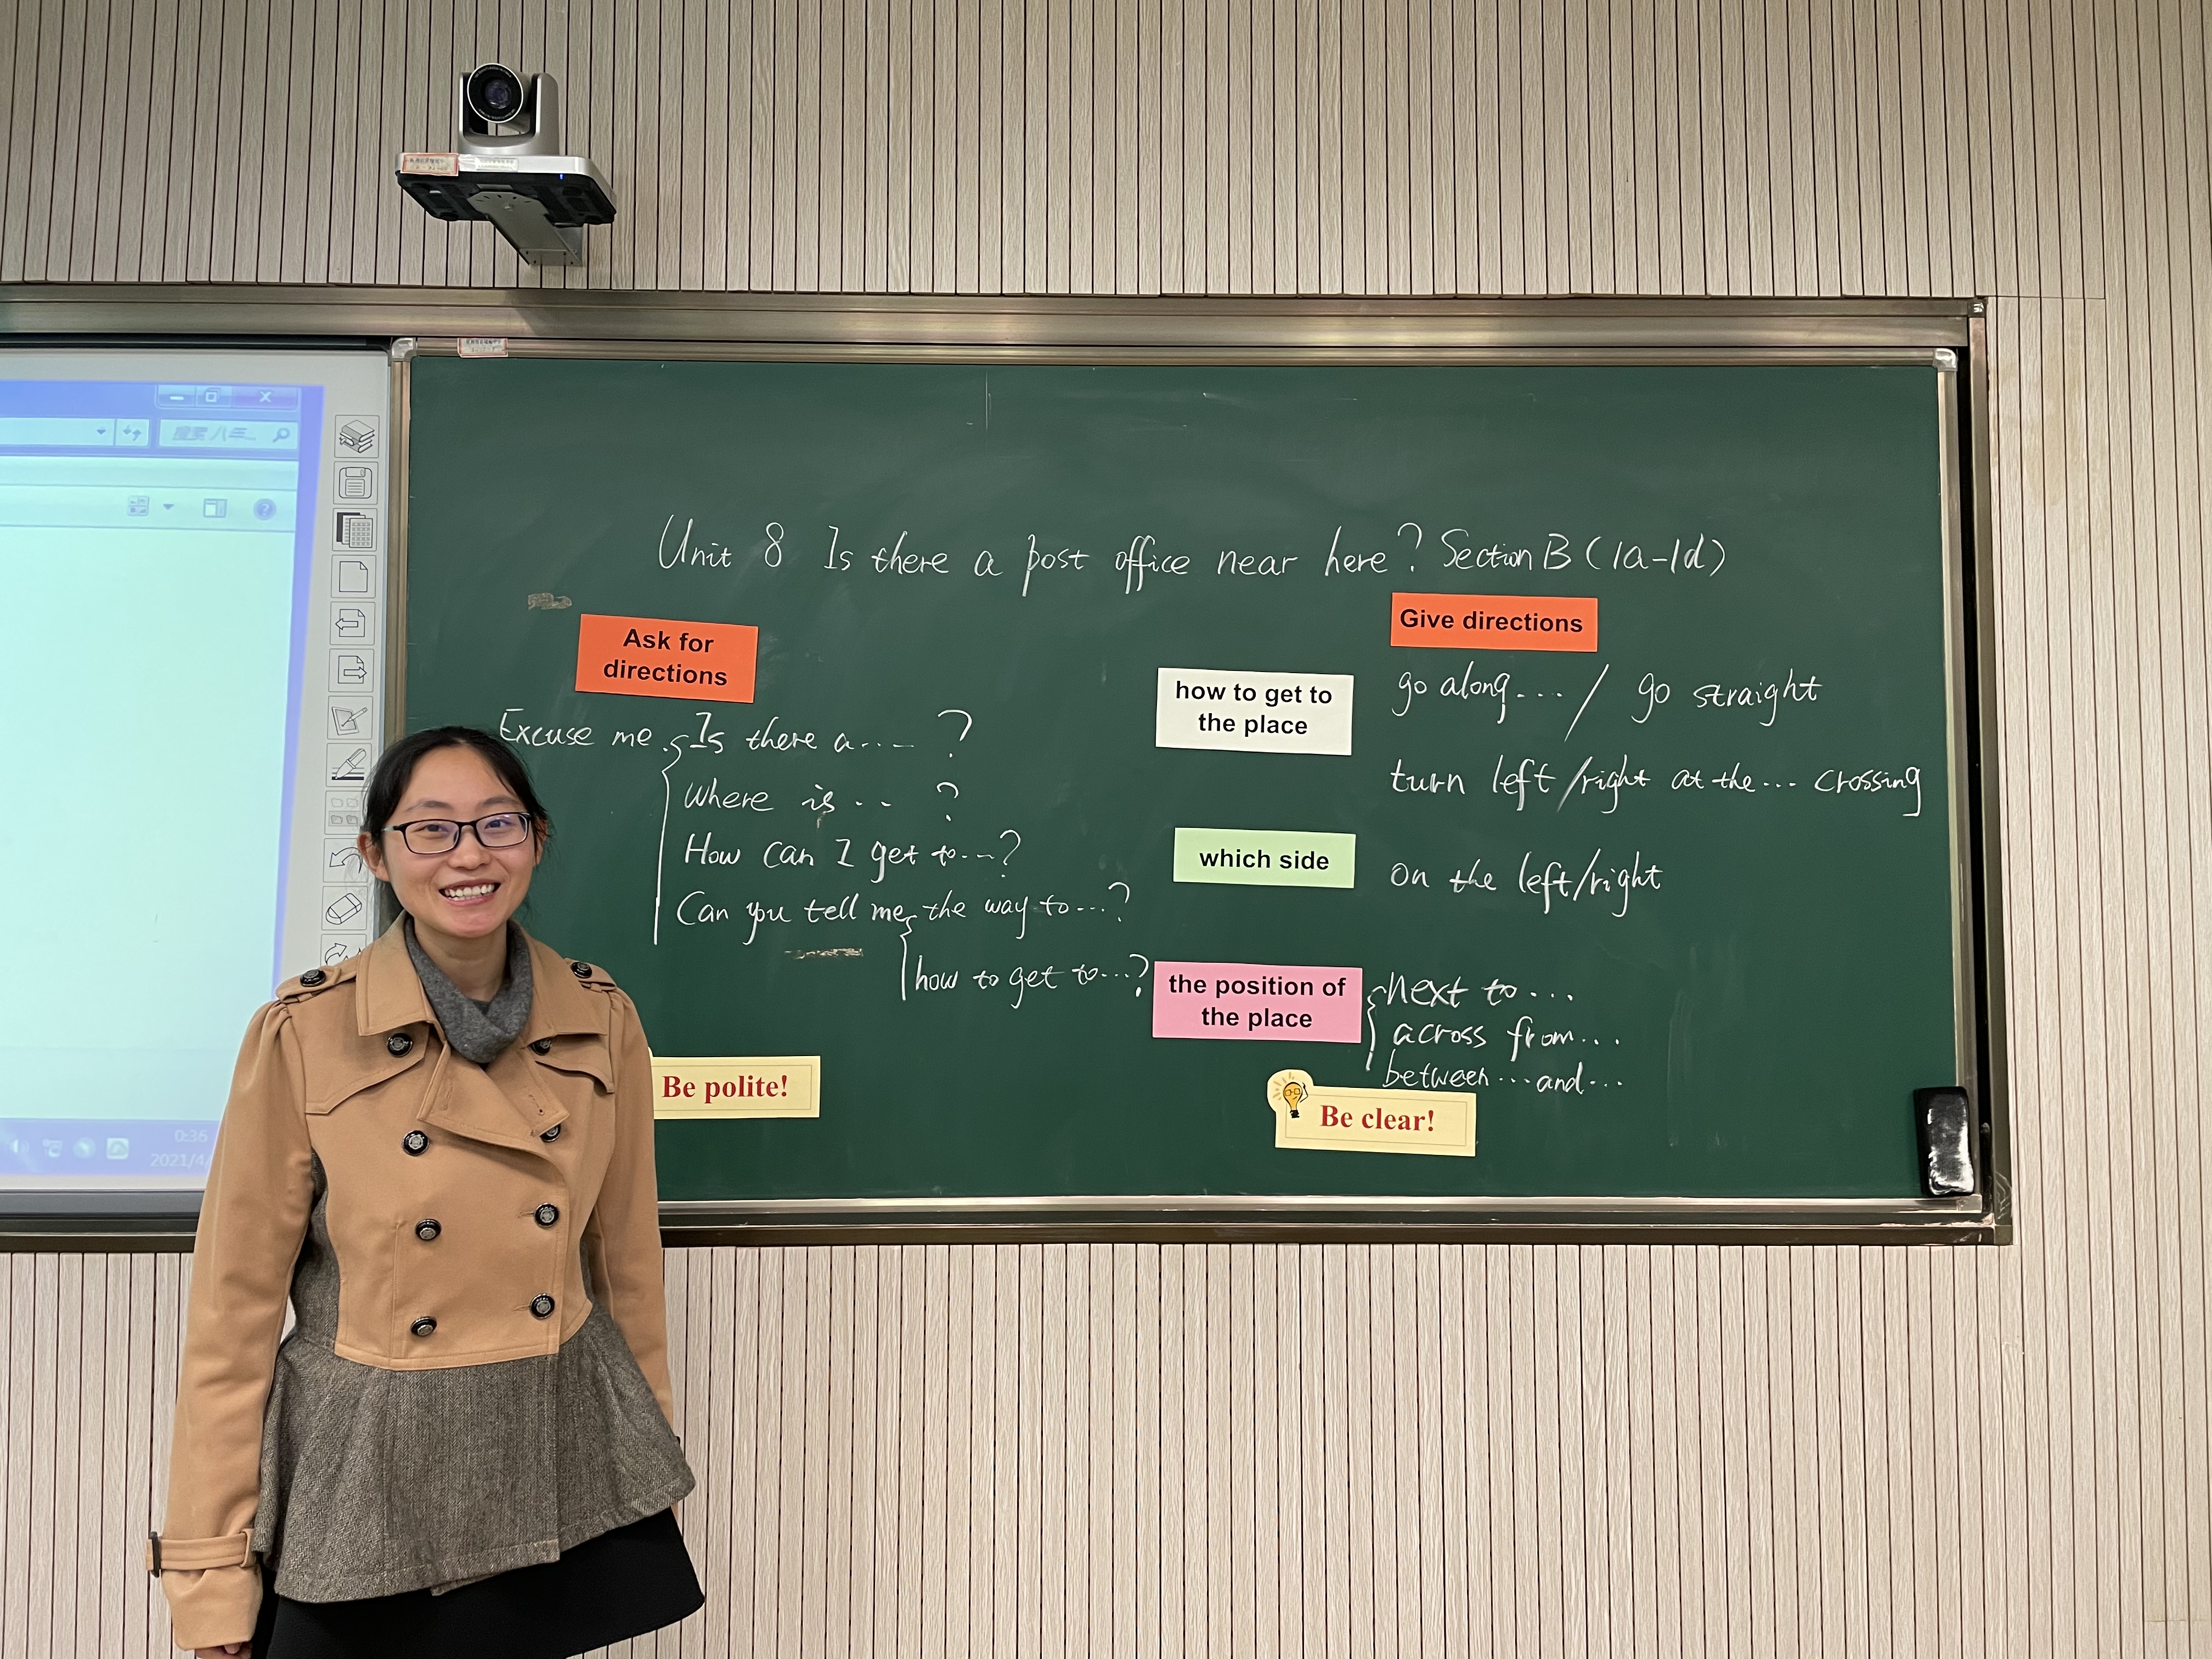 搜索 八年...
Unit 8 Is there a post office near here? Section B (1a-1d)
Ask for
directions
Excuse me. Is there a.... ?
Where is... ?
How can I get to...?
Can you tell me the way to...?
how to get to...?
Be polite!
Give directions
how to get to
the place
go along.... / go straight
turn left/right at the... crossing
which side
on the left/right
the position of
the place
next to...
across from...
between...and...
Be clear!
0:36
2021/4